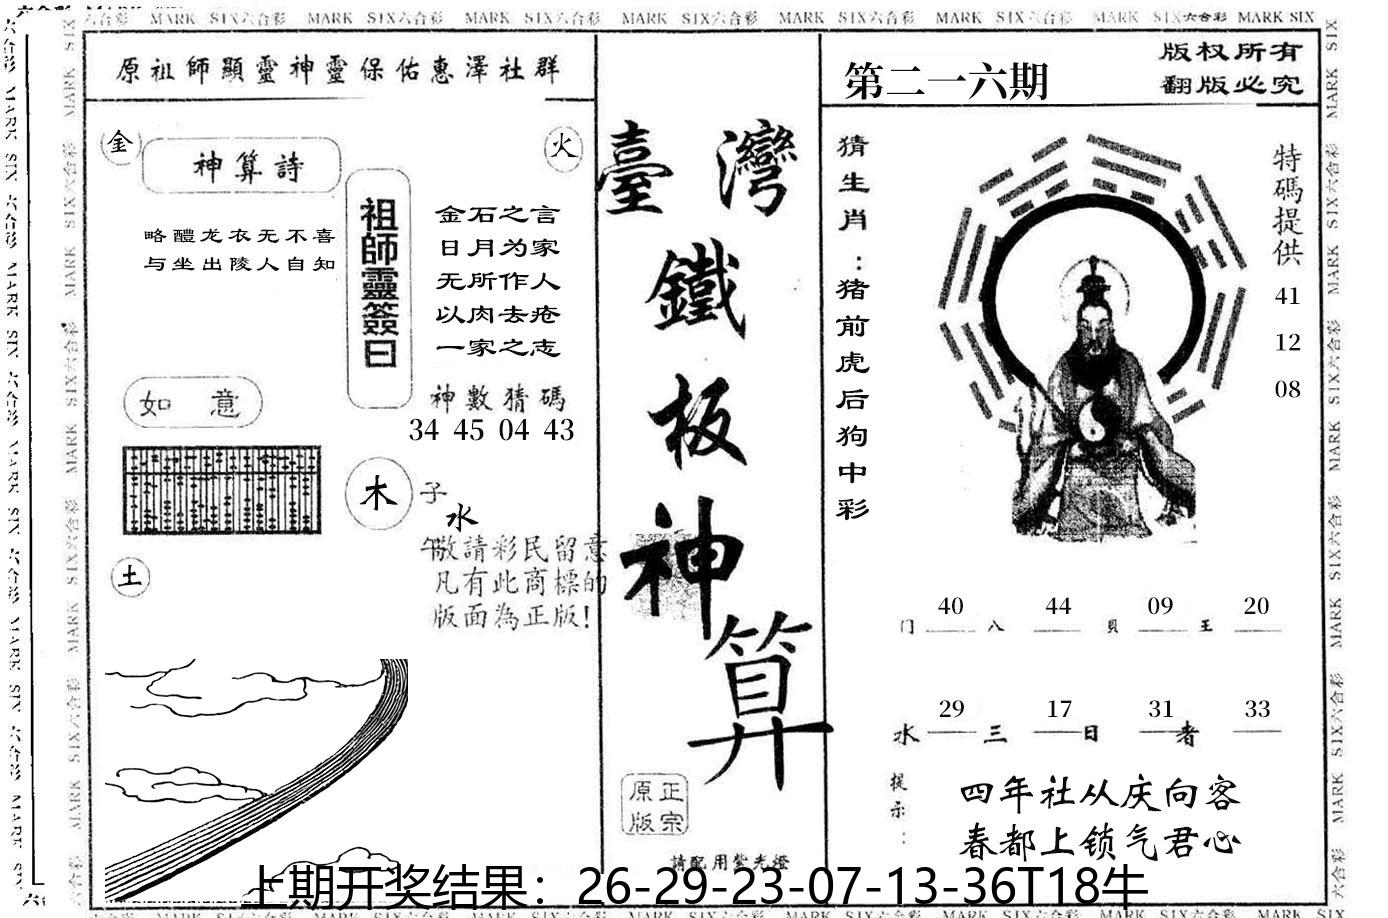 原祖師顯靈神靈保佑惠澤社群
金
神算詩
火
略醴龙衣无不喜
与坐出陵人自知
祖師靈簽曰
金石之言
日月为家
无所作人
以肉去疮
一家之志
神數猜碼
34 45 04 43
如意
木
子
水
午
土
敬請彩民留意
凡有此商標的
版面為正版!
臺灣
鐵
板
神
算
正宗
原版
請配用紫光燈
第二一六期
版权所有
翻版必究
猜生肖:猪前虎后狗中彩
特碼提供
41
12
08
40 44 09 20
门 八 貝 王
29 17 31 33
水 三 日 者
提示:
四年社从庆向客
春都上锁气君心
上期开奖结果：26-29-23-07-13-36T18牛
MARK SIX六合彩 MARK SIX六合彩 MARK SIX六合彩 MARK SIX六合彩 MARK SIX六合彩 MARK SIX六合彩 MARK SIX六合彩 MARK SIX